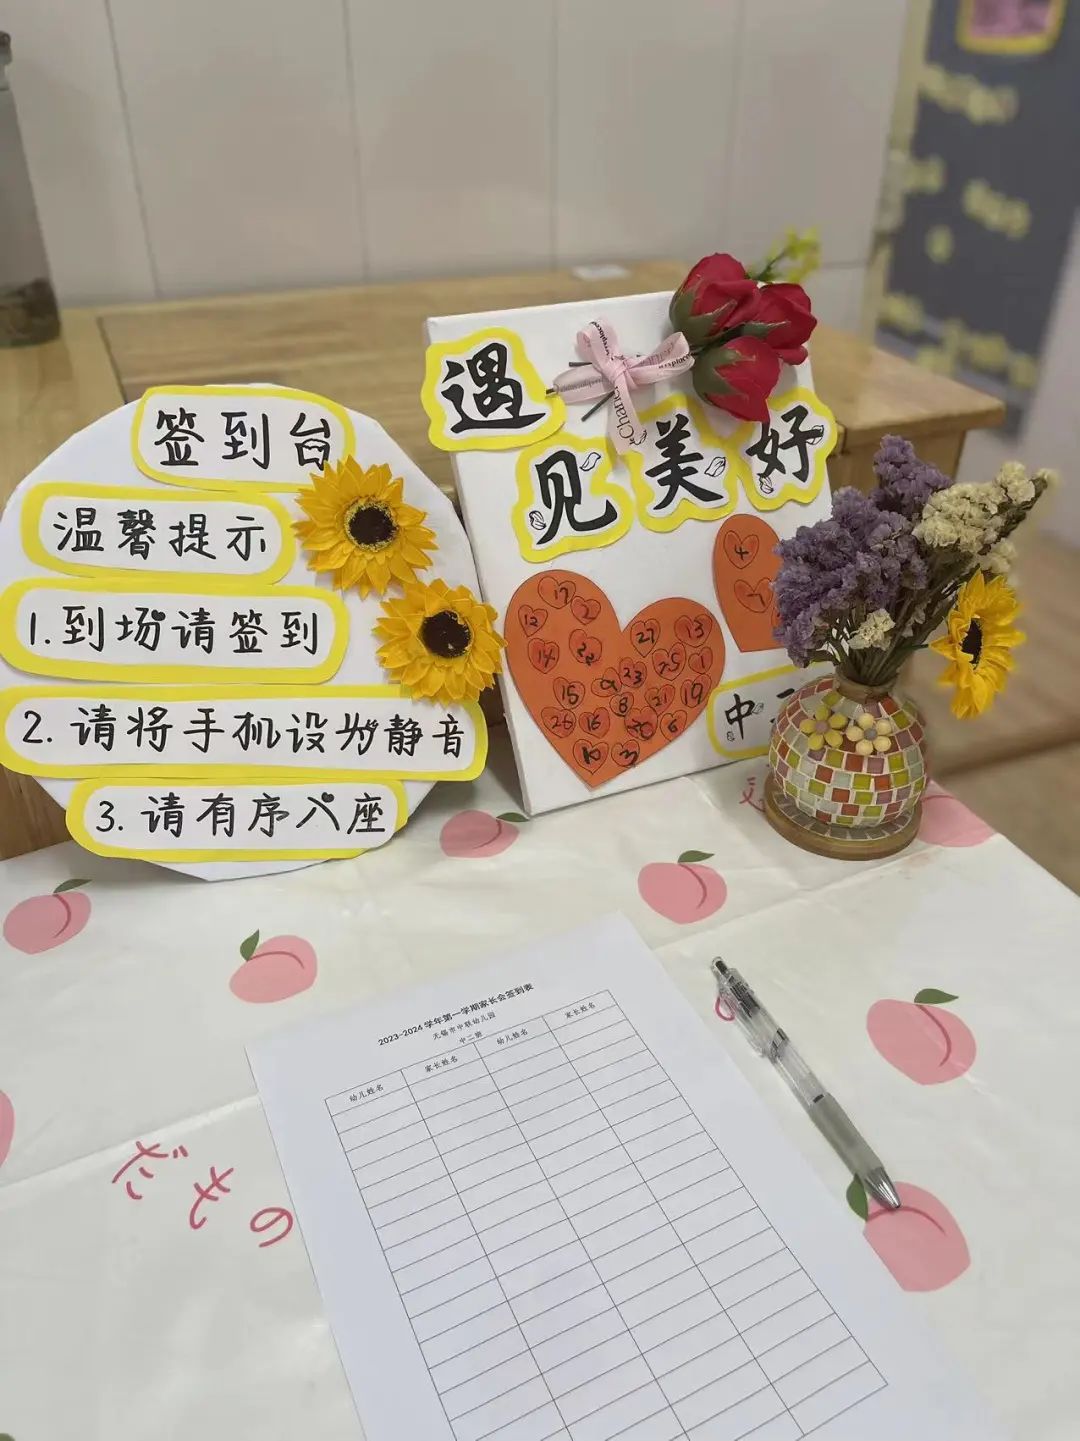 签到台
温馨提示
1.到场请签到
2.请将手机设为静音
3.请有序入座
遇见美好
4
17
2
12
27
13
14
22
23
25
1
15
9
8
21
19
26
16
20
6
10
3
中
2023-2024学年第一学期家长会签到表
无锡市中联幼儿园
中二班
幼儿姓名 家长姓名 幼儿姓名 家长姓名
だもの